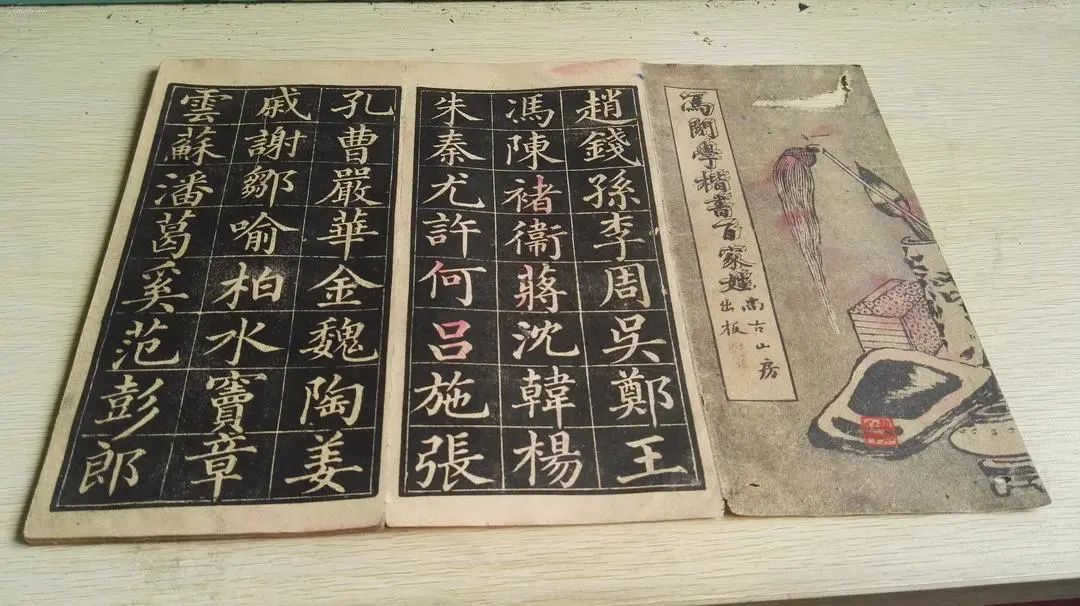 學楷書百家姓
尚古山房
出板
趙錢孫李周吳鄭王
馮陳褚衛蔣沈韓楊
朱秦尤許何吕施張
孔曹嚴華金魏陶姜
戚謝鄒喻柏水竇章
雲蘇潘葛奚范彭郎